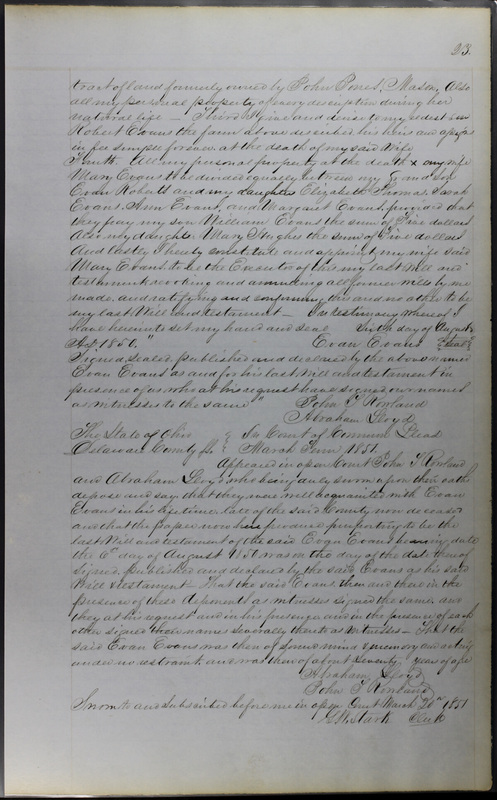 23.
tract of land formerly owned by John Jones, Mason, Also
all my personal property of every description during her
natural life — Third I give and devise to my eldest son
Robert Evans the farm above described his heirs and assigns
in fee simple forever at the death of my said Wife
Fourth. All my personal property at the death of my wife
Mary Evans to be divided equally between my Grand son
Evan Roberts and my daughters Elizabeth Thomas, Sarah
Evans. Ann Evans, and Margaret Evans, provided that
they pay my son William Evans the sum of Five dollars
Also my daughter Mary Hughes the sum of Five dollars
And lastly I hereby constitute and appoint my wife said
Mary Evans to be the Executor of this my last Will and
testament revoking and annulling all former wills by me
made, and ratifying and confirming this and no other to be
my last Will and testament — In testimony whereof I
have hereunto set my hand and seal day of August
AD 1850." Evan Evans Seal
Signed, sealed published and declared by the above named
Evan Evans as and for his last will and testament in
presence of us who at his request have signed our names
as witnesses to the same" John T Rowland
Abraham Lloyd
The State of Ohio } In Court of Common Pleas
Delaware County Ss. } March Term 1851.
Appeared in open Court John T Rowland
and Abraham Lloyd who being duly sworn upon their oaths
depose and say that they were well acquainted with Evan
Evans in his lifetime late of the said County now deceased
and that the paper now here produced purporting to be the
last Will and testament of the said Evan Evans bearing date
the 6th day of August 1850 was on the day of the date thereof
signed, published and declared by the said Evans as his said
Will & testament That the said Evans then and there in the
presence of these deponents as witnesses signed the same and
they at his request and in his presence and in the presence of each
other signed their names severally thereto as witnesses — That the
said Evan Evans was then of sound mind & memory and acting
under no restraint and was then of about Seventy years of age
Abraham Lloyd
John T Rowland
Sworn to and subscribed before me in open Court March 20th 1851
Stark Clerk